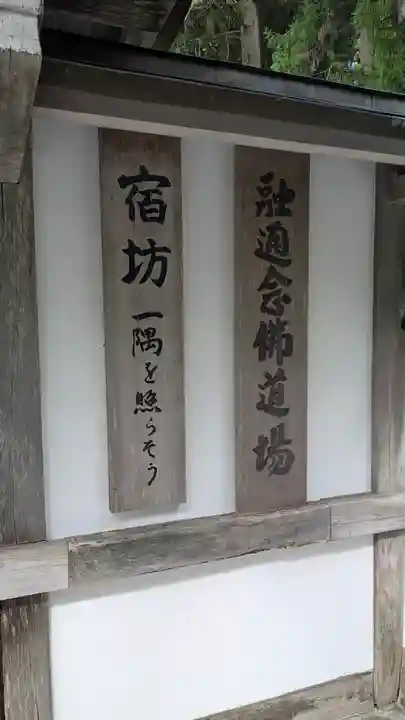 融通念佛道場
宿坊 一隅を照らそう